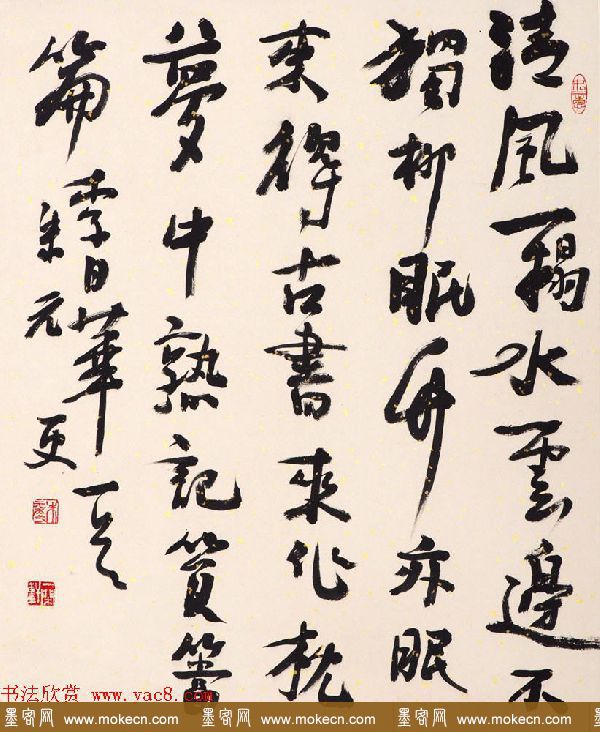 清風一榻水雲邊不
獨柳眠竹亦眠
束得古書來作枕
夢中熟記篔簹
篇 李日華一
朱元更
书法欣赏 www.vac8.com
墨客网 www.mokecn.com 墨客网 www.mokecn.com 墨客网 www.mokecn.com